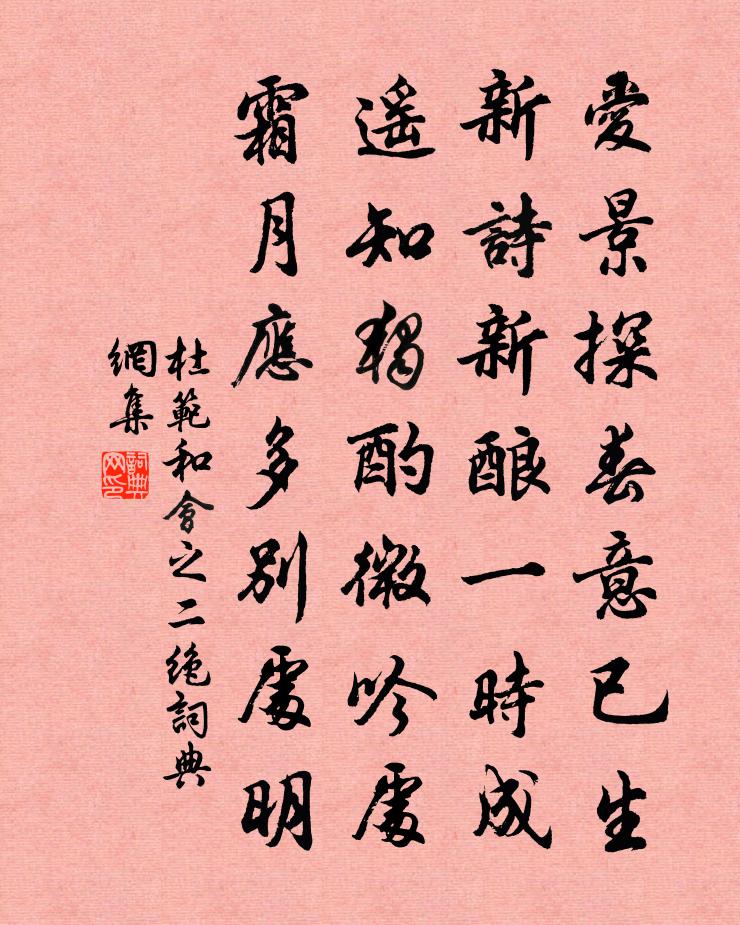 愛景探春意已生
新詩新釀一時成
遥知獨酌微吟處
霜月應多別處明
杜範和會之二絶詞典
網集
詞典
网印